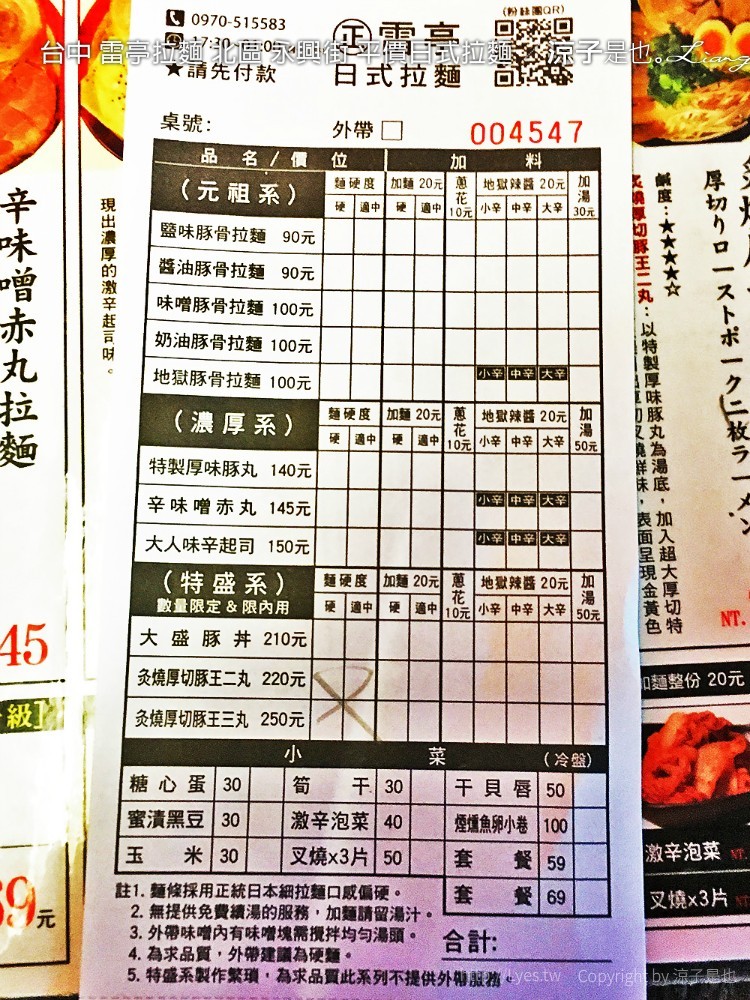 (粉絲團QR)
0970-515583
正 雷亭
日式拉麵
17:30
★請先付款
台中 雷亭拉麵 北區 永興街 平價日式拉麵 涼子是也。Liang
桌號:
外帶□
004547
品名/價位 加料
(元祖系) 麵硬度 加麵 20元 蔥花10元 地獄辣醬 20元 加湯30元
硬 適中 硬 適中 小辛 中辛 大辛
鹽味豚骨拉麵 90元
醬油豚骨拉麵 90元
味噌豚骨拉麵 100元
奶油豚骨拉麵 100元
地獄豚骨拉麵 100元 小辛 中辛 大辛
(濃厚系) 麵硬度 加麵 20元 蔥花10元 地獄辣醬 20元 加湯50元
硬 適中 硬 適中 小辛 中辛 大辛
特製厚味豚丸 140元
辛味噌赤丸 145元 小辛 中辛 大辛
大人味辛起司 150元 小辛 中辛 大辛
(特盛系) 麵硬度 加麵 20元 蔥花10元 地獄辣醬 20元 加湯50元
數量限定&限內用 硬 適中 硬 適中 小辛 中辛 大辛
大盛豚丼 210元
炙燒厚切豚王二丸 220元
炙燒厚切豚王三丸 250元
小菜 (冷盤)
糖心蛋 30 筍干 30 干貝唇 50
蜜漬黑豆 30 激辛泡菜 40 煙燻魚卵小卷 100
玉米 30 叉燒x3片 50 套餐 59
套餐 69
註1. 麵條採用正統日本細拉麵口感偏硬。
2. 無提供免費續湯的服務,加麵請留湯汁。
3. 外帶味噌內有味噌塊需攪拌均勻湯頭。
4. 為求品質,外帶建議為硬麵。
5. 特盛系製作繁瑣,為求品質此系列不提供外帶服務。
合計:
辛味噌赤丸拉麵
現出濃厚的激辛起司味。
45
級】
元
厚切りローストポーク二枚ラーメン
鹹度:★★★★☆
炙燒厚切豚王二丸:以特製厚味豚丸為湯底,加入超大厚切特
表面呈現金黃色
NT.
加麵整份 20元
激辛泡菜 NT.
叉燒x3片 NT
yes.tw Copyright by 涼子是也